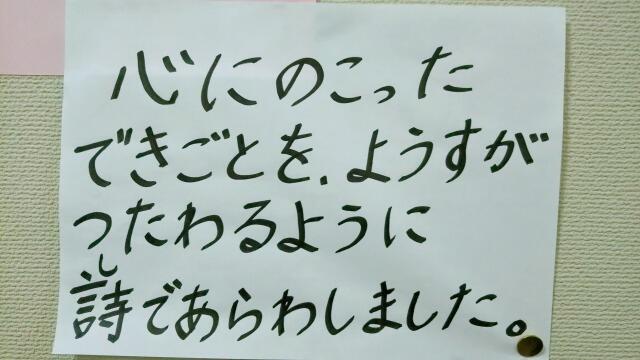 心にのこった
できごとを、ようすが
つたわるように
し
詩であらわしました。